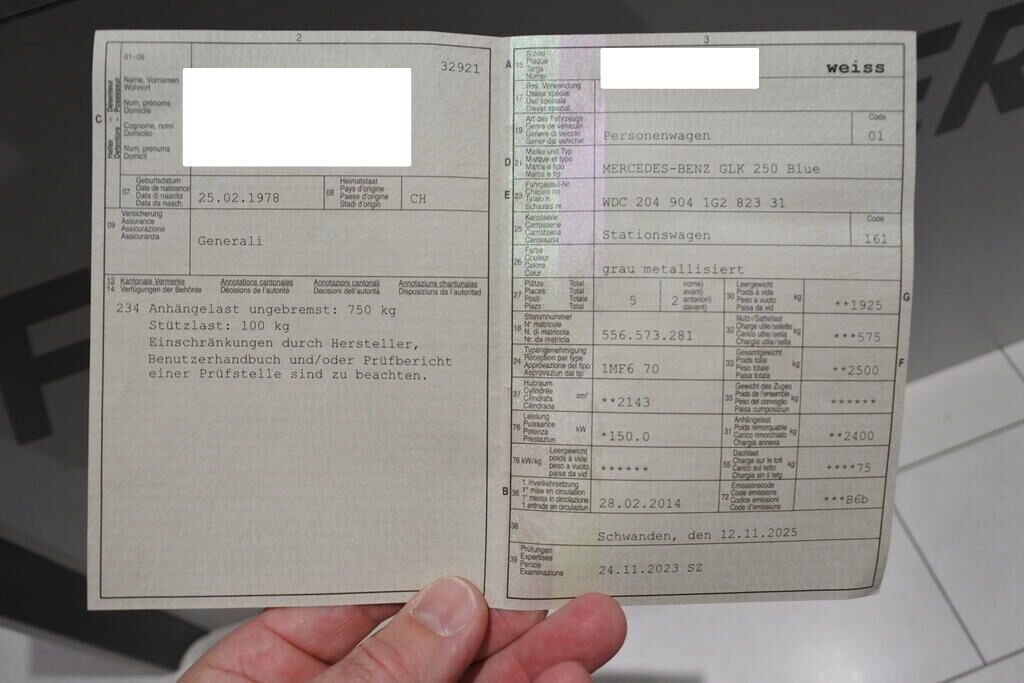 2
01-06
32921
Détenteur Possesseur
Halter Detentore
C
Name, Vornamen
Wohnort
Nom, prénoms
Domicile
Cognome, nomi
Domicilio
Num, prenums
Domicil
07 Geburtsdatum
Date de naissance
Data di nascita
Data da nasch.
25.02.1978
08 Heimatstaat
Pays d'origine
Paese d'origine
Stadi d'origin
CH
09 Versicherung
Assurance
Assicurazione
Assicuranza
Generali
13 Kantonale Vermerke Annotations cantonales Annotazioni cantonali Annotaziuns chantunalas
14 Verfügungen der Behörde Décisions de l'autorité Decisioni dell'autorità Disposiziuns da l'autoritad
234 Anhängelast ungebremst: 750 kg
Stützlast: 100 kg
Einschränkungen durch Hersteller,
Benutzerhandbuch und/oder Prüfbericht
einer Prüfstelle sind zu beachten.
3
A 15 Schild
Plaque
Targa
Numer
weiss
17 Bes. Verwendung
Usage spécial
Uso speciale
Diever spezial
19 Art des Fahrzeugs
Genre de véhicule
Genere di veicolo
Gener dal vehichel
Personenwagen
Code
01
D 21 Marke und Typ
Marque et type
Marca e tipo
Marca e tip
MERCEDES-BENZ GLK 250 Blue
E 23 Fahrgestell-Nr.
Châssis no
Telaio n.
Schassis nr.
WDC 204 904 1G2 823 31
25 Karosserie
Carrosserie
Carrozzeria
Carossaria
Stationswagen
Code
161
26 Farbe
Couleur
Colore
Colur
grau metallisiert
27 Plätze: Total
Places: Total
Posti: Totale
Plazs: Total
5
2
vorne)
avant)
anteriori)
davant)
G
30 Leergewicht
Poids à vide
Peso a vuoto
Paisa da vid
kg
**1925
18 Stammnummer
N° matricule
N. di matricola
Nr. da matricla
556.573.281
32 Nutz-/Sattellast
Charge utile/sellette
Carico utile/sella
Chargia utila/sella
kg
***575
24 Typengenehmigung
Réception par type
Approvazione del tipo
Approvaziun dal tip
1MF6 70
33 Gesamtgewicht
Poids total
Peso totale
Paisa totala
kg
**2500
F
37 Hubraum
Cylindrée
Cilindrata
Cilindrada
cm³
**2143
35 Gewicht des Zuges
Poids de l'ensemble
Peso del convoglio
Paisa cumposiziun
kg
******
76 Leistung
Puissance
Potenza
Prestaziun
kW
*150.0
31 Anhängelast
Poids remorquable
Carico rimorchiato
Chargia annexa
kg
**2400
78 kW/kg
Leergewicht
poids à vide
peso a vuoto
paisa da vid
******
55 Dachlast
Charge sur le toit
Carico sul tetto
Chargia sin il tetg
kg
****75
B 36 1. Inverkehrsetzung
1re mise en circulation
1a messa in circolazione
1. entrada en circulaziun
28.02.2014
72 Emissionscode
Code émissions
Codice emissioni
Code d'emissiuns
***B6b
38
Schwanden, den 12.11.2025
39 Prüfungen
Expertises
Perizie
Examinaziuns
24.11.2023 SZ
ER